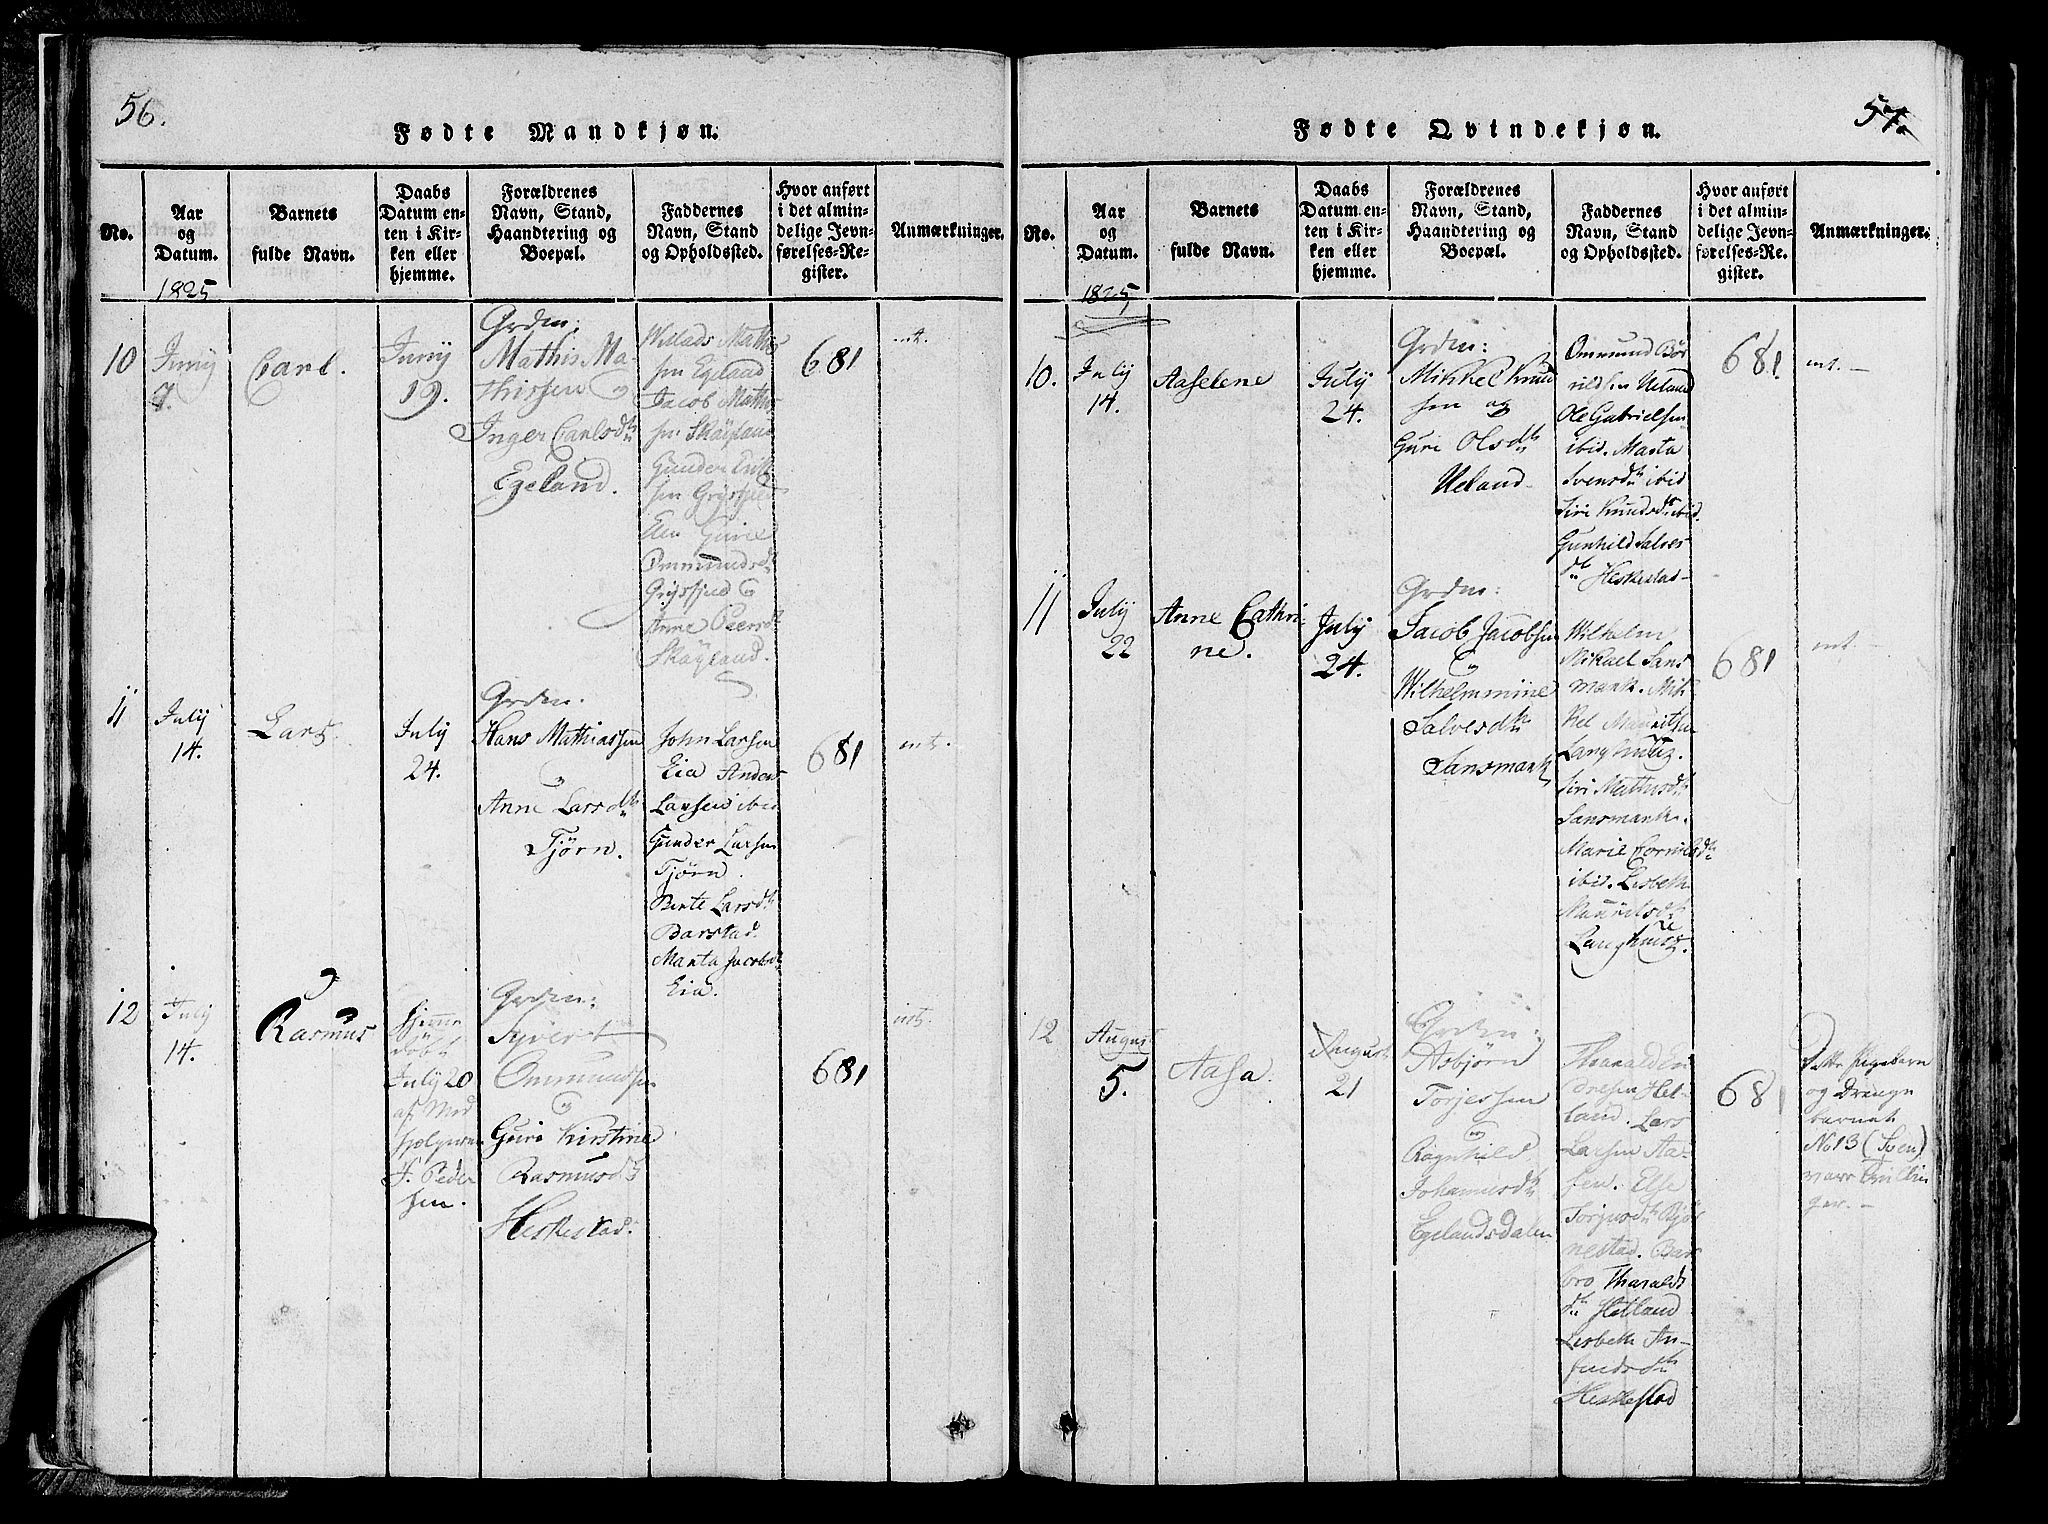 56.
Fødte Mandkjøn.
No.
Aar
og
Datum.
Barnets
fulde Navn.
Daabs
Datum en-
ten i Kir-
ken eller
hjemme.
Forældrenes
Navn, Stand,
Haandtering og
Boepæl.
Faddernes
Navn, Stand
og Opholdssted.
Hvor anført
i det almin-
delige Jevn-
førelses-Re-
gister.
Anmærkninger.
1825
10
Juny
7.
Carl.
Juny
19.
Grdm:
Mathis Ma-
thissen og
Inger Carlsdtr
Egeland.
Wilads Mathis
sen Egeland
Jacob Mathis
sen Skåyland
Gunder Erik
sen
Guri
Ommundsdtr
Anne Peersdtr
Skåyland.
681
int.
11
July
14.
Lars.
July
24.
Grdm:
Hans Mathiassen
og
Anne Larsdtr
Tjørn.
John Larsen
Eia Anders
Larsen ibid
Gunder Larsen
Tjørn.
Berte Larsdtr
Barstad
Marta Jacobsdtr
Eia.
681
int.
12
July
14.
Rasmus
Hjemme
døbt
July 20
af Med
hjelperen
J. Peder
sen.
Grdm:
Syvert
Ommundsen
og
Guri Kirstine
Rasmusdtr
Heskestad.
681
int.
57.
Fødte Qvindekjøn.
No.
Aar
og
Datum.
Barnets
fulde Navn.
Daabs
Datum en-
ten i Kir-
ken eller
hjemme.
Forældrenes
Navn, Stand,
Haandtering og
Boepæl.
Faddernes
Navn, Stand
og Opholdssted.
Hvor anført
i det almin-
delige Jevn-
førelses-Re-
gister.
Anmærkninger.
1825
10.
July
14.
Aaselene
July
24.
Grdm:
Mikkel Knud
sen og
Guri Olsdtr
Ueland
Ommund Bør
ildsen Ueland
Ole Gabrielsen
ibid. Marta
Svensdtr ibid
Siri Knudsdtr ibid.
Gunhild Salves
dtr Heskestad
681
int.
11
July
22
Anne Cathri-
ne.
July
24.
Grdm:
Jacob Jacobsen
og
Wilhelmmine
Salvesdtr
Sansmark
Wilhelm
Mikael Sans
mark. Mik
kel Mauritsen
Langhuus.
Siri Mathisdtr
Sansmark.
Marie Cornelsdtr
ibid. Lisbeth
Mauritsdtr
Langhuus.
681
int.
12
August
5.
Aasa.
August
21
Grdm:
Asbjørn
Torjessen
og
Ragnhild
Johannesdtr
Egelandsdalen
Tharald En
dresen Het-
land. Lars
Larsen Aa-
sen. Else
Torjusdtr Bjør
nestad. Bar
bro Tharalds
dtr Hetland
Lisbeth An-
findsdtr
Heskestad
681
Dette Pigebarn
og Drenge
barnet
No 13 (Sven)
vare Tvillin
ger.